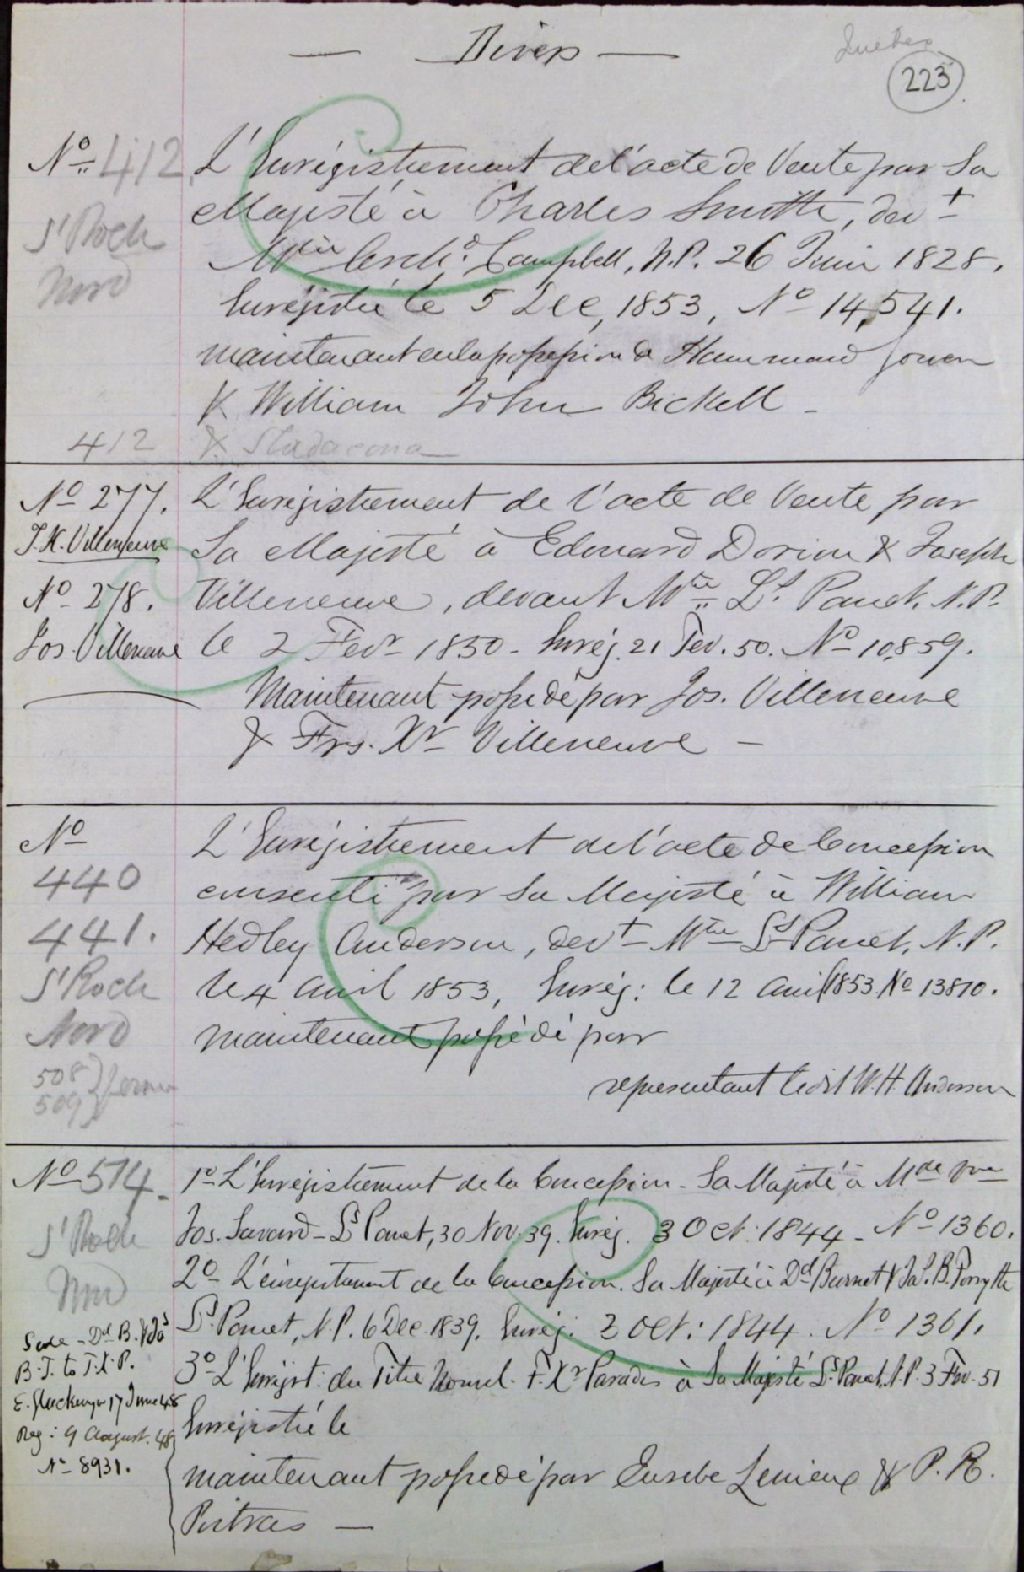 — Divers —
Quebec
223
No 412 L'Enrégistrement de l'acte de Vente par Sa
St Roch
Nord
Majesté à Charles Smith, devt
Mtre Archd. Campbell, N.P. 26 Juin 1828.
Enrégistré le 5 Dec, 1853, No 14,541.
maintenant en la possession de Hammond Gowen
& William John Bickell —
412 & Stadacona
No 277. L'Enregistrement de l'acte de Vente par
F.X. Villeneuve Sa Majesté à Edouard Dorion & Joseph
No 278. Villeneuve, devant Mtre Ls. Panet. N.P.
Jos. Villeneuve le 2 Fevr 1850. Enrég. 21 Fev. 50. No 10,859.
Maintenant possedé par Jos. Villeneuve
& Frs. Xr Villeneuve —
No L'Enrégistrement de l'acte de Concession
440 consenti par Sa Majesté à William
441. Hedley Anderson, devt Mtre Ls Panet, N.P.
St Roch le 4 avril 1853, Enrég: le 12 avril 1853 No 13810.
Nord maintenant possédé par
508
509
representant ledit W.H. Anderson
No 514. 1o L'Enregistrement de la Concession Sa Majesté à Mde Vve
St Roch Jos. Savard — Ls Panet, 30 Nov. 39. Enrég. 3 Oct. 1844 — No 1360.
Nord 2o L'énregistrement de la Concession Sa Majesté à Dd Burnet & Jas. B. Forsyth
Ls Panet, N.P. 6 Dec 1839. Enrég: 2 Oct: 1844. No 1361.
Sale — Dd B. & Jas
B. F. to F.X.P.
3o L'Enregist. du Titre Nouvel. F. Xr Paradis à Sa Majesté Ls. Panet, N.P. 3 Fev. 51
E. Glackmeyer 17 June 48
Enregistré le
Reg: 9 August. 48
No 8931.
maintenant possedé par Eusebe Lemieux & P. R.
Poitras —